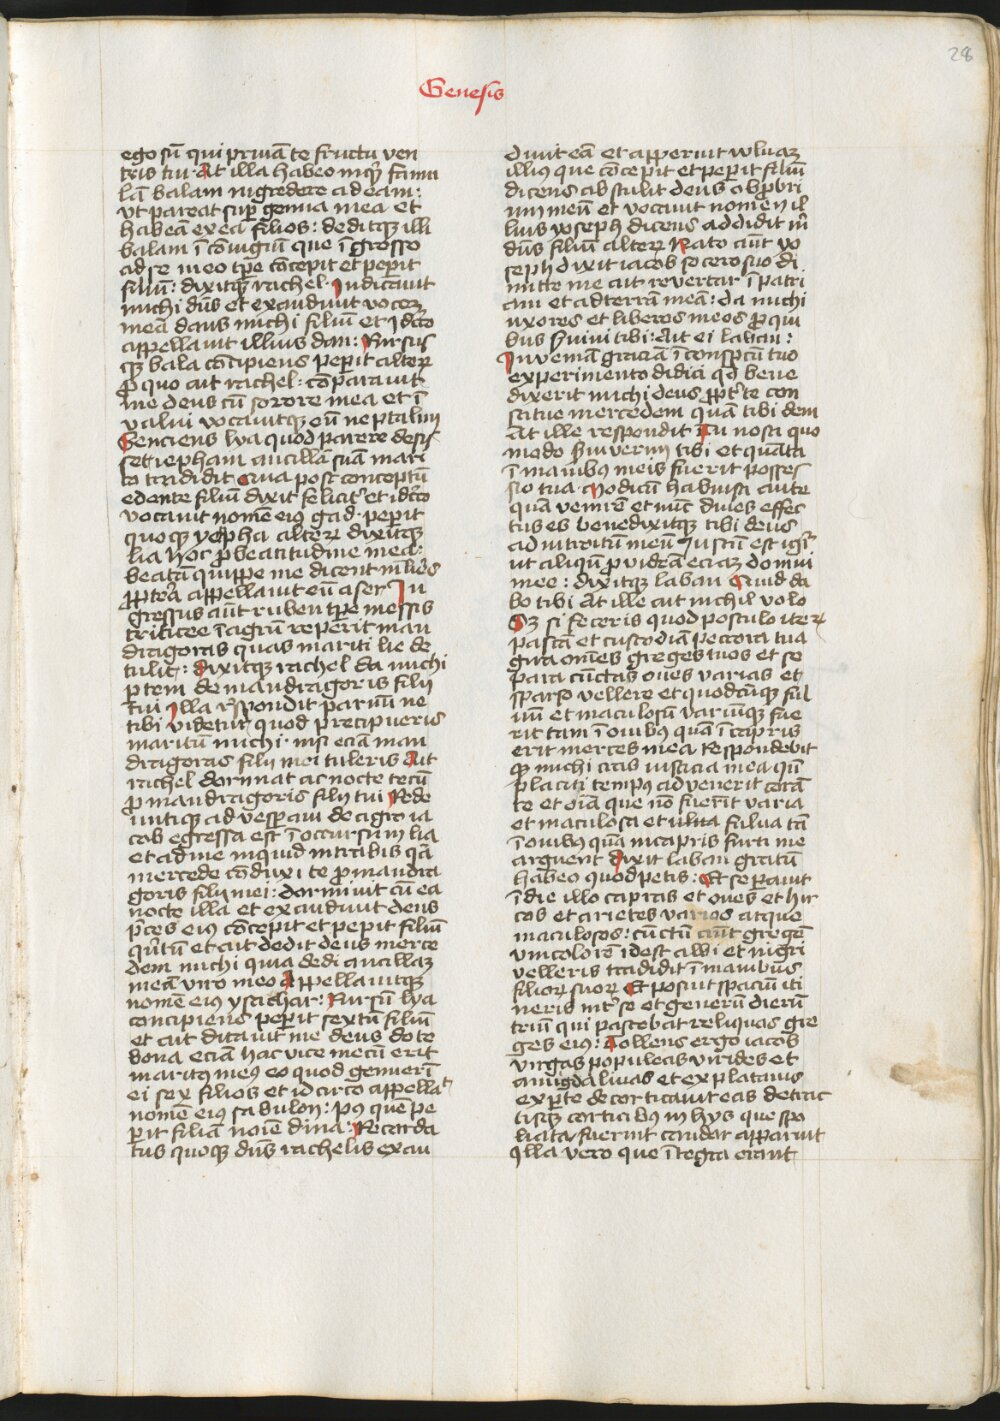 28
Genesis
ego sū qui priuāte fructu ven
tris tui. At illa habeo inqͥ famu
lā balam ingredere ad eam:
vt pareat suꝑ genua mea et
habeā ex ea filios: deditqꝫ illi
balam ī cōiugiū que īgresso
ad se meo tꝑe cōcepit et peperit
filiū: dixitqꝫ rachel. Iudicauit
michi dn̄s et exaudiuit vocem
meā dans michi filiū et idcͦco
appellauit illius dan: Rursus
qꝫ bala cōcipiens peperit alterꝝ
ꝓ quo ait rachel: cōparauit
me deus cū sorore mea et ī
valui vocauitqꝫ eū neptalim
Senciens lya quod parere desis
set zepham ancillā suā mari
to tradidit. Qua post conceptū
edente filiū dixit feliciter et idcͦco
vocauit nomē eiꝰ gad. peperit
quoqꝫ zepha alterꝝ dixitqꝫ
lia hoc ꝓ beatitudine mea:
beatā quippe me dicent mulieres
ꝓpterea appellauit eū aser In
gressus aūt ruben tꝑe messis
triticee ī agrū reperit man
dragoras quas matri lie de
tulit: dixitqꝫ rachel da michi
ꝑtem de mandragoris filij
tui Illa respondit parum ne
tibi videtur quod precipueris
maritū michi. nisi eciā man
dragoras filij mei tuleris Ait
rachel dormiat ac nocte tecū
ꝓ mandragoris filij tui Rede
untiqꝫ ad vesꝑam de agro ia
cob egressa est ī occursum lia
et ad me inquid intrabis qꝛ
mercede cōduxi te ꝓ mandra
goris filij mei: dormiuit cū ea
nocte illa et exaudiuit deus
p̄ces eiꝰ cōcepit et peperit filiū
quītū et ait dedit deus merce
dem michi quia dedi ancillaꝫ
meā viro meo Appellauitqꝫ
nomē eiꝰ ysachar: Rursū lya
concipiens peperit sextū filiū
et ait ditauit me deus dote
bona eciā hac vice mecū erit
maritꝰ meꝰ eo quod genuerī
ei sex filios et idcirco appellat
nomē eiꝰ sabulon: Pꝰ quē pe
perit filiā noīe dina: Recorda
tus quoqꝫ dn̄s rachelis exau
diuit eā et apperuit wluaꝫ
illiꝰ que cōcepit et peperit filiū
dicens abstulit deus obꝓbri
um meū et vocauit nomen il
lius yoseph dicens addidit m̄
dn̄s filiū alterꝝ Nato aūt yo
seph dixit iacob socero suo di
mitte me ait revertar ī patri
am et ad terrā meā: da michi
uxores et liberos meos ꝓ qui
bus seruiui tibi: Ait ei laban:
Inueniā graciā ī conspcū tuo
experimento didici qd bene
dixerit michi deus ꝓpter te con
stitue mercedem quā tibi dem
At ille respondit Tu nosti quo
modo seruierim tibi et quāta
ī manibꝰ meis fuerit posses
sio tua. Modicū habuisti ante
quā venirē et nūc diues effec
tus es benedixitqꝫ tibi deus
ad introitū meū Iustū est igit
ut aliqn̄ ꝓuideā eciaꝫ domui
mee: dixitqꝫ laban Quid da
bo tibi At ille ait nichil volo
Sꝫ si feceris quod postulo iterꝝ
pascā et custodiā peccora tua
gira omēs greges tuos et se
para cūctas oues varias et
sparso vellere et quodcūqꝫ ful
uū et maculosū variūqꝫ fue
rit tam ī ouibꝰ quā ī capris
erit merces mea respondebit
qꝫ michi cras iusticia mea qn̄
placiti tempꝰ aduenerit corā
te et oīa que nō fuerīt varia
et maculosa et fulua tā
ī ouibꝰ quā in capris furti me
arguent Dixit laban gratū
habeo quod petis: Et seꝑauit
ī die illo capras et oues et hir
cos et arietes varios atque
maculosos: cūctū aūt gregē
vnicolorē id est albi et nigri
velleris tradidit ī manibus
filiorꝝ suorꝝ Et posuit spaciū iti
neris inter se et generū dierū
triū qui pascebat reliquas gre
ges eiꝰ: Tollens ergo iacob
virgas populeas virides et
amigdalinas et ex platanis
ex ꝑte decorticauit eas detrac
tisqꝫ corticibꝰ in hys que spo
liata fuerint candor apparuit
illa vero que ītegra erant